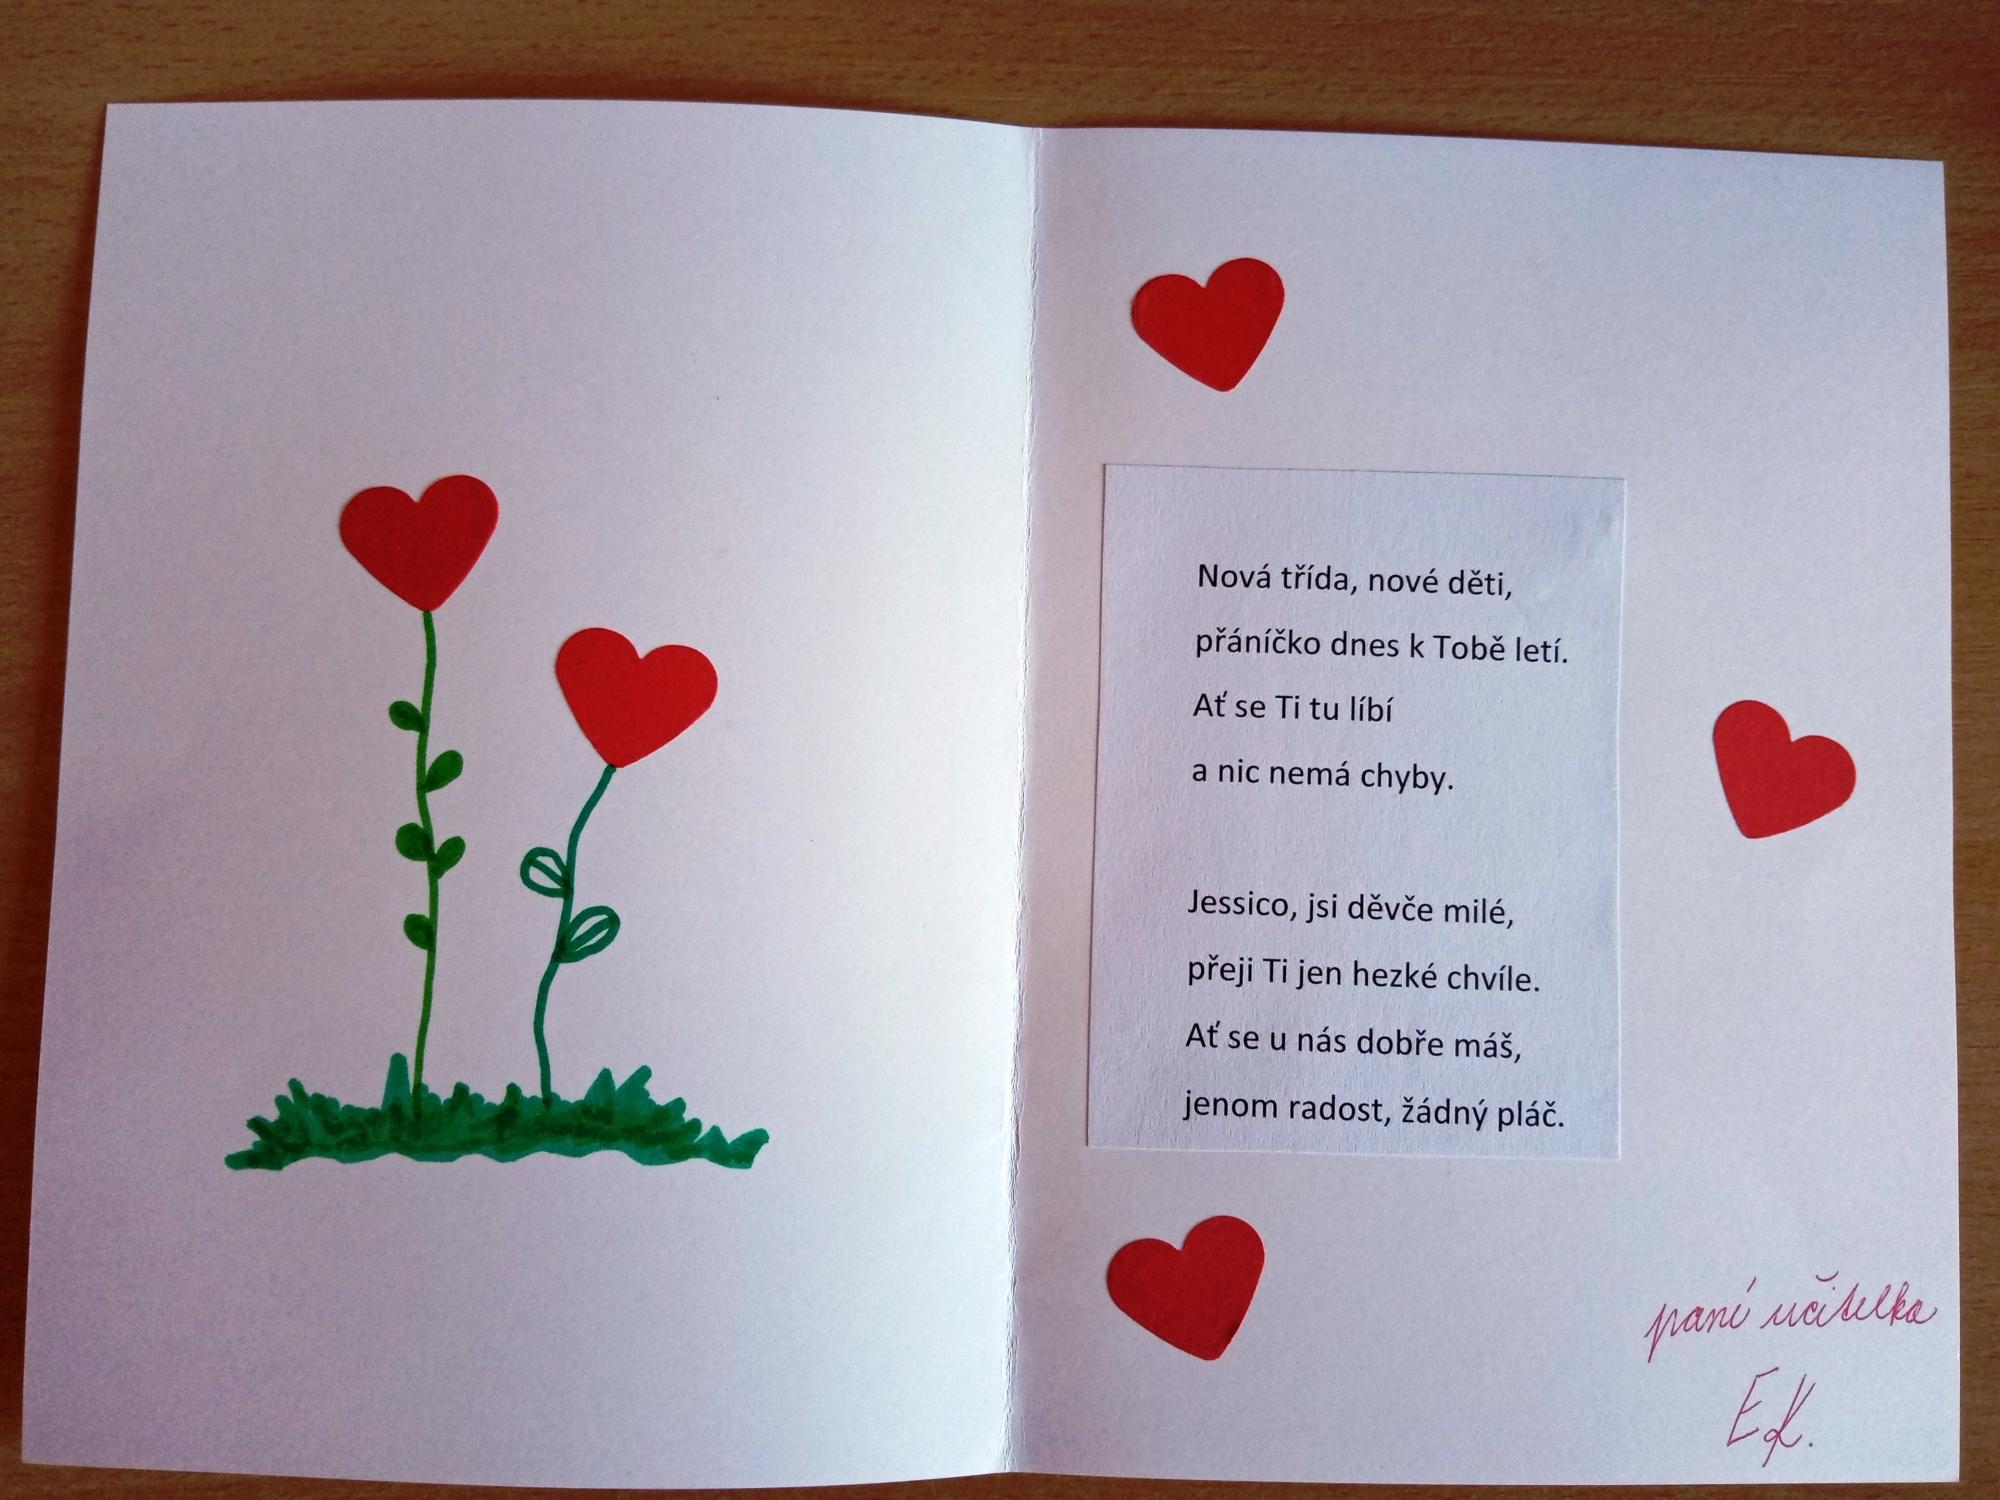 Nová třída, nové děti,
přáníčko dnes k Tobě letí.
Ať se Ti tu líbí
a nic nemá chyby.
Jessico, jsi děvče milé,
přeji Ti jen hezké chvíle.
Ať se u nás dobře máš,
jenom radost, žádný pláč.
paní učitelka
EK.